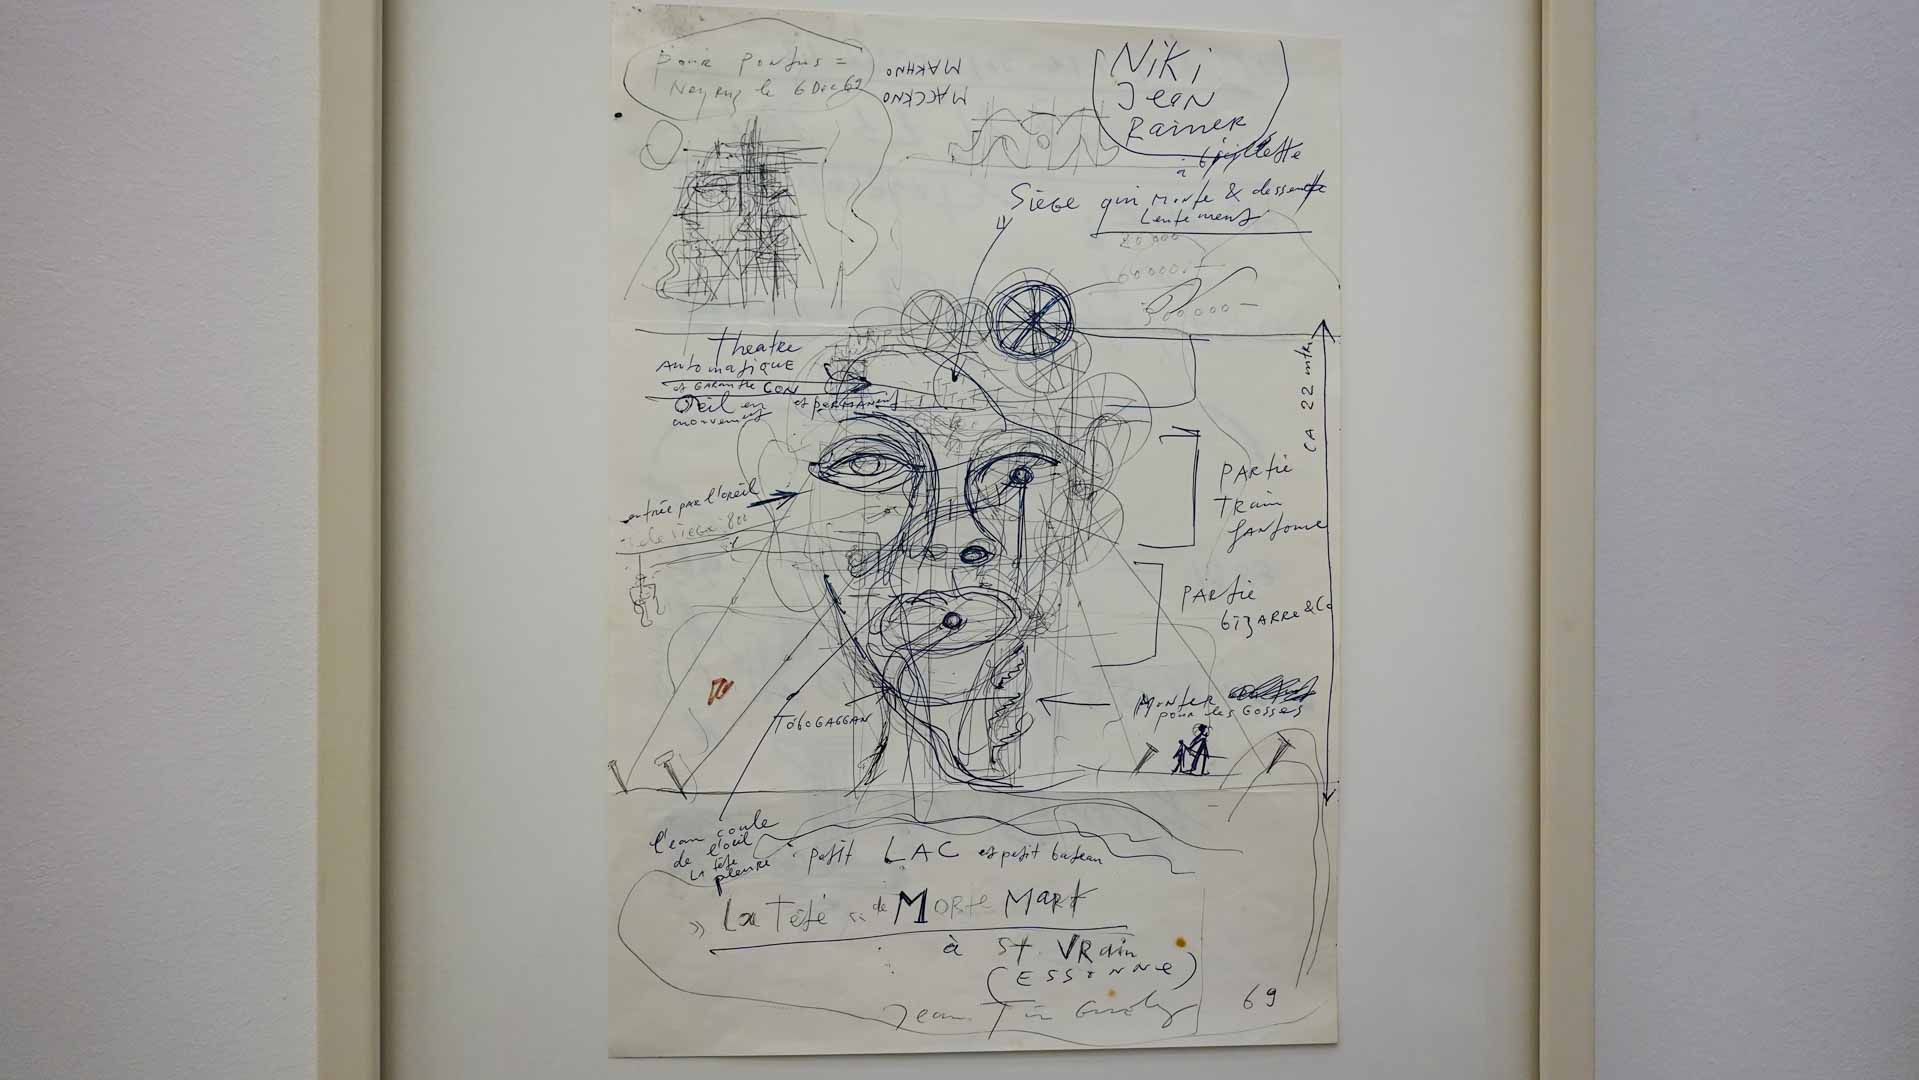 Pour Pontus =
Neyruz le 6 Dec 69
MAKHNO
MACCKNO
Niki
Jean
Rainer
à
Siège qui monte & dessente
Lentement
80.000
60000.-
300.000 -
Theatre
AUTOMATIQUE
et GARANTIE CON
et PERMANENT
Oeil en
mouvement
CA 22 mtr
PARtie
TRain
fantome
entrée PAR l'oreil
PARtie
biZARRe & Co
Monter
pour les GOSSES
TOboGAGGAN
l'eau coule
de l'oeil
la tete
pleure
petit LAC et petit bateau
" La Tété de MORte MARt
à St. VRain
(ESSONNE)
Jean Tinguely
69